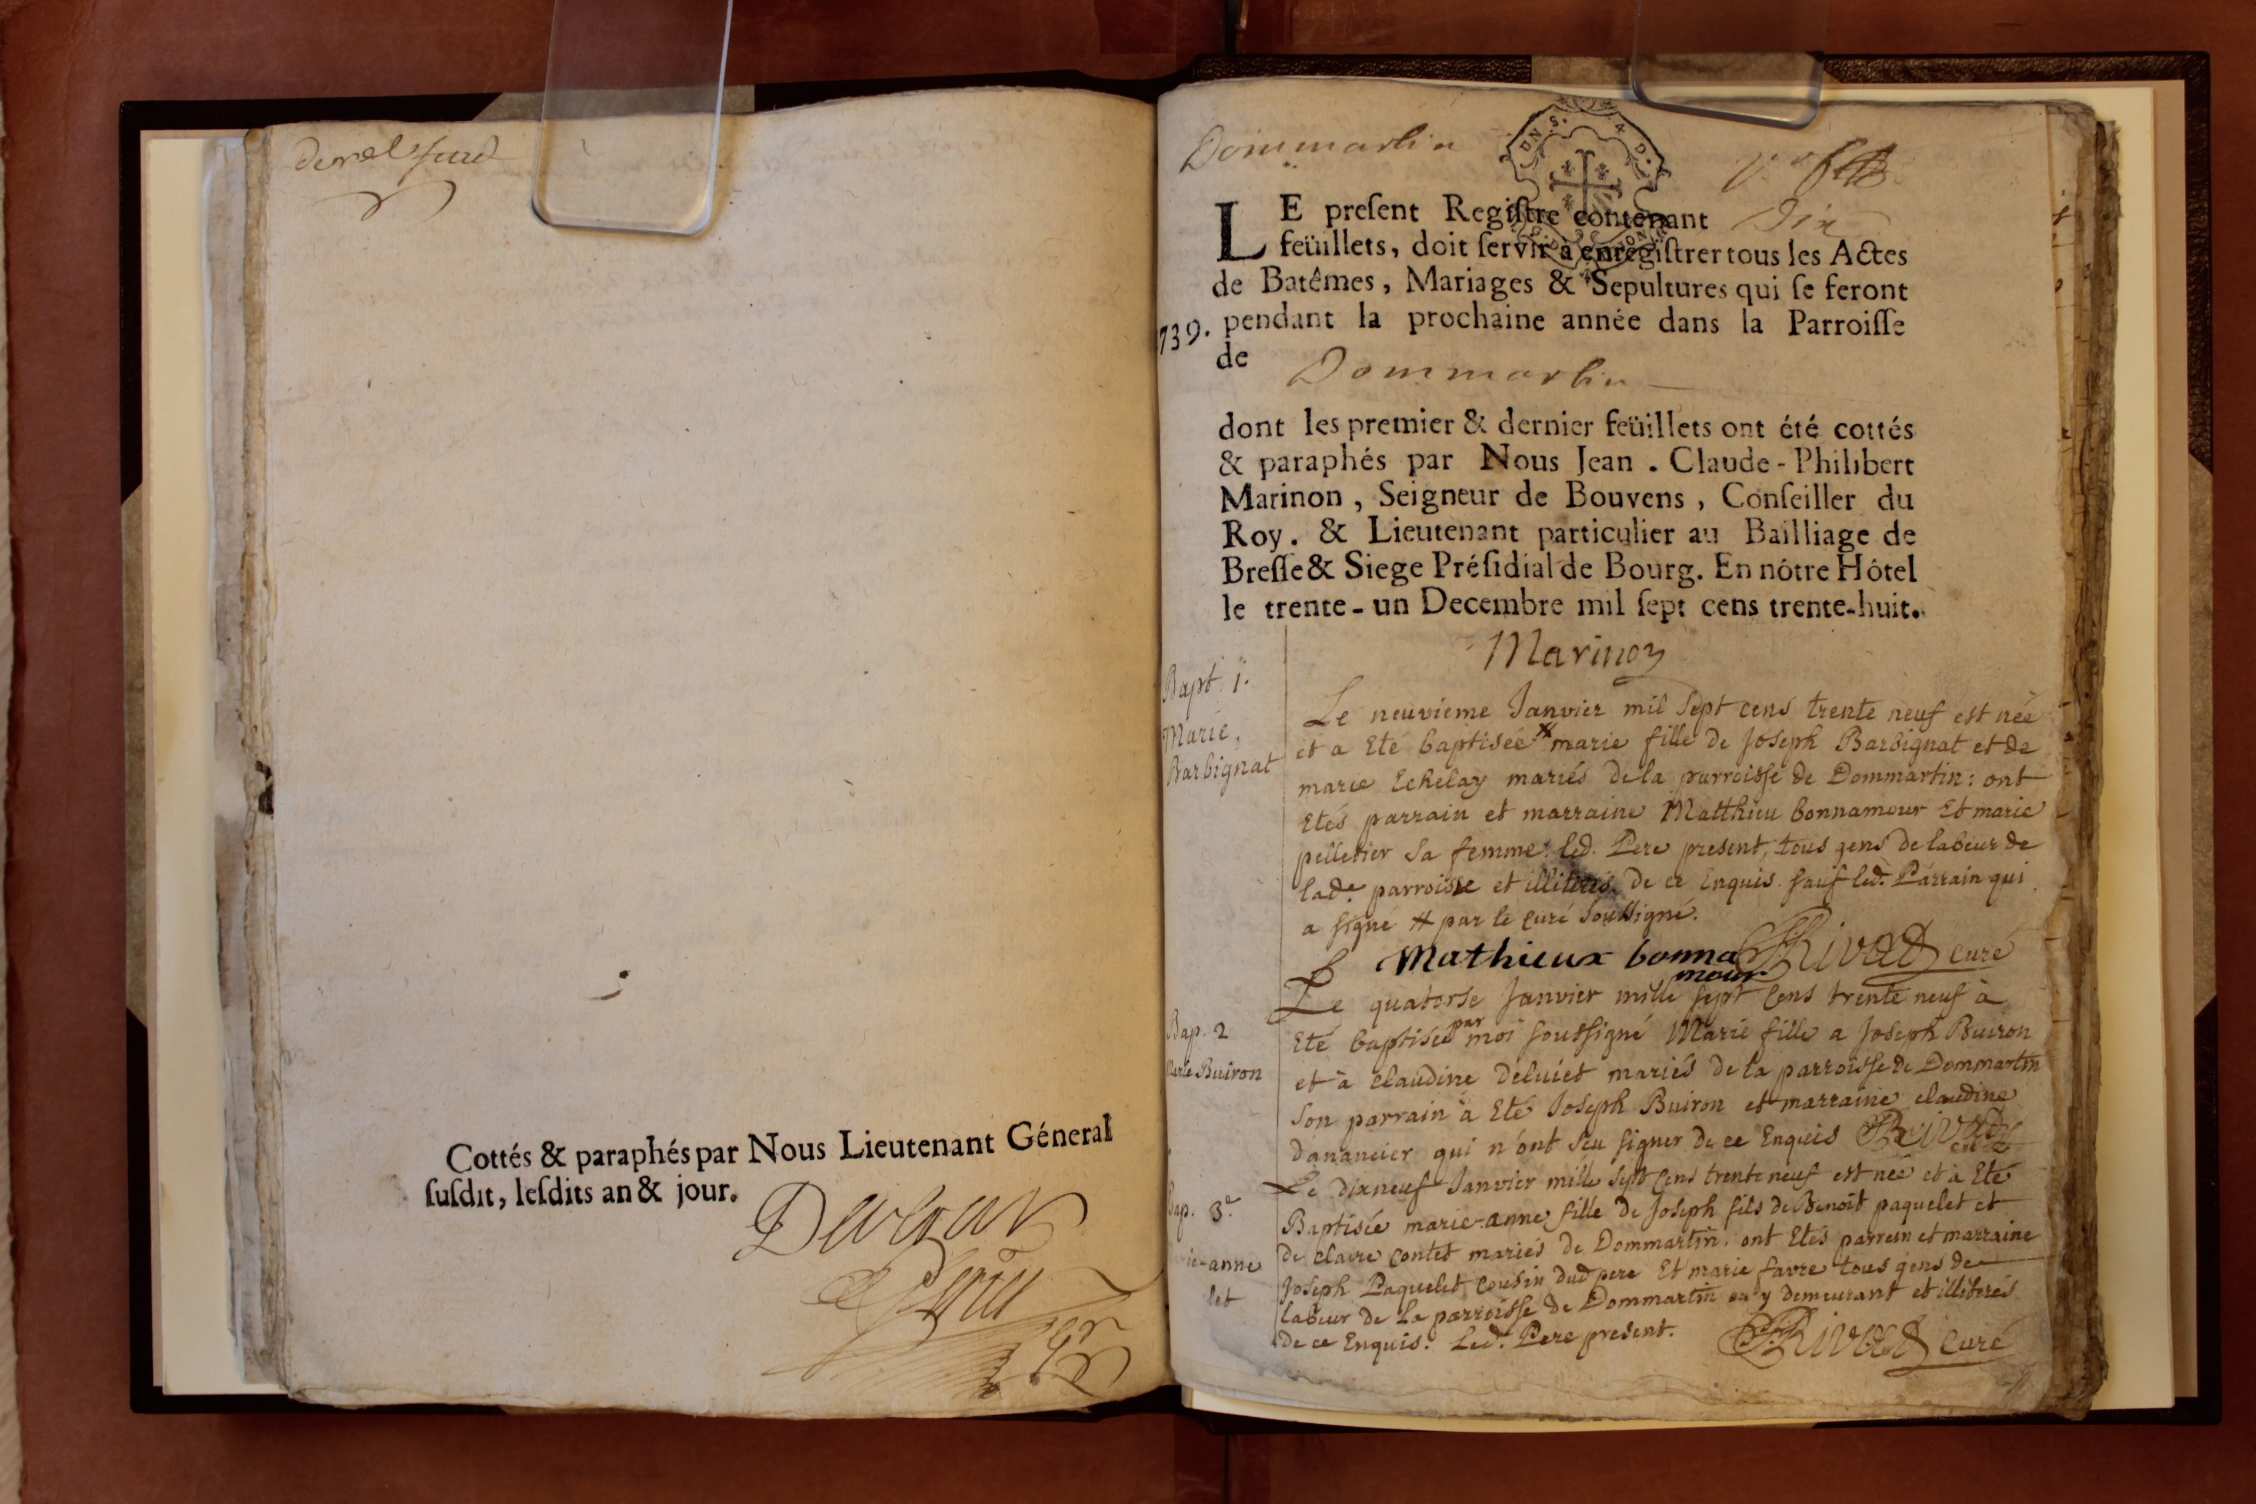 Cottés & paraphés par Nous Lieutenant Géneral
ſuſdit, leſdits an & jour.
Dommartin
LE preſent Regiſtre contenant Dix
feüillets, doit ſervir à enregiſtrer tous les Actes
de Batêmes, Mariages & Sepultures qui ſe feront
739. pendant la prochaine année dans la Parroiſſe
de
Dommartin
dont les premier & dernier feüillets ont été cottés
& paraphés par Nous Jean . Claude - Philibert
Marinon , Seigneur de Bouvens , Conſeiller du
Roy . & Lieutenant particulier au Bailliage de
Breſſe & Siege Préſidial de Bourg. En nôtre Hôtel
le trente - un Decembre mil ſept cens trente-huit.
Marinon
Bapt. 1.
Marie,
Barbignat
Le neuvieme Janvier mil Sept cens trente neuf est née
et a Eté baptisée # marie fille de Joseph Barbignat et de
marie Echelay mariés de la parroisse de Dommartin: ont
Etés parrain et marraine Matthieu bonnamour Et marie
pelletier Sa femme. led. Pere present, tous gens de labeur de
lad.e parroisse et illiterés de ce Enquis. Sauf led. Parrain qui
a signé # par le curé Soussigné.
Mathieux bonna
mour
Rivat curé
Bap. 2
Marie Buiron
Le quatorse Janvier mille Sept Cens trente neuf à
Eté baptisée par moi Soussigné Marie fille a Joseph Buiron
et à claudine Deluiet mariés de la parroisse de Dommartin
Son parrain à Eté Joseph Buiron et marraine claudine
dananeier qui n'ont Seu signer de ce Enquis Rivat
Bap. 3.e
ie-anne
let
Le dixneuf Janvier mille Sept Cens trente neuf est née et à Eté
Baptisée marie-anne fille de Joseph fils de Benoît paquelet et
de claire contet mariés de Dommartin. ont Etés parrein et marraine
Joseph Paquelet cousin dud pere Et marie favre tous gens de
labeur de la parroisse de Dommartin ou y demeurant et illiterés
de ce Enquis. Led. Pere present. Rivat Curé